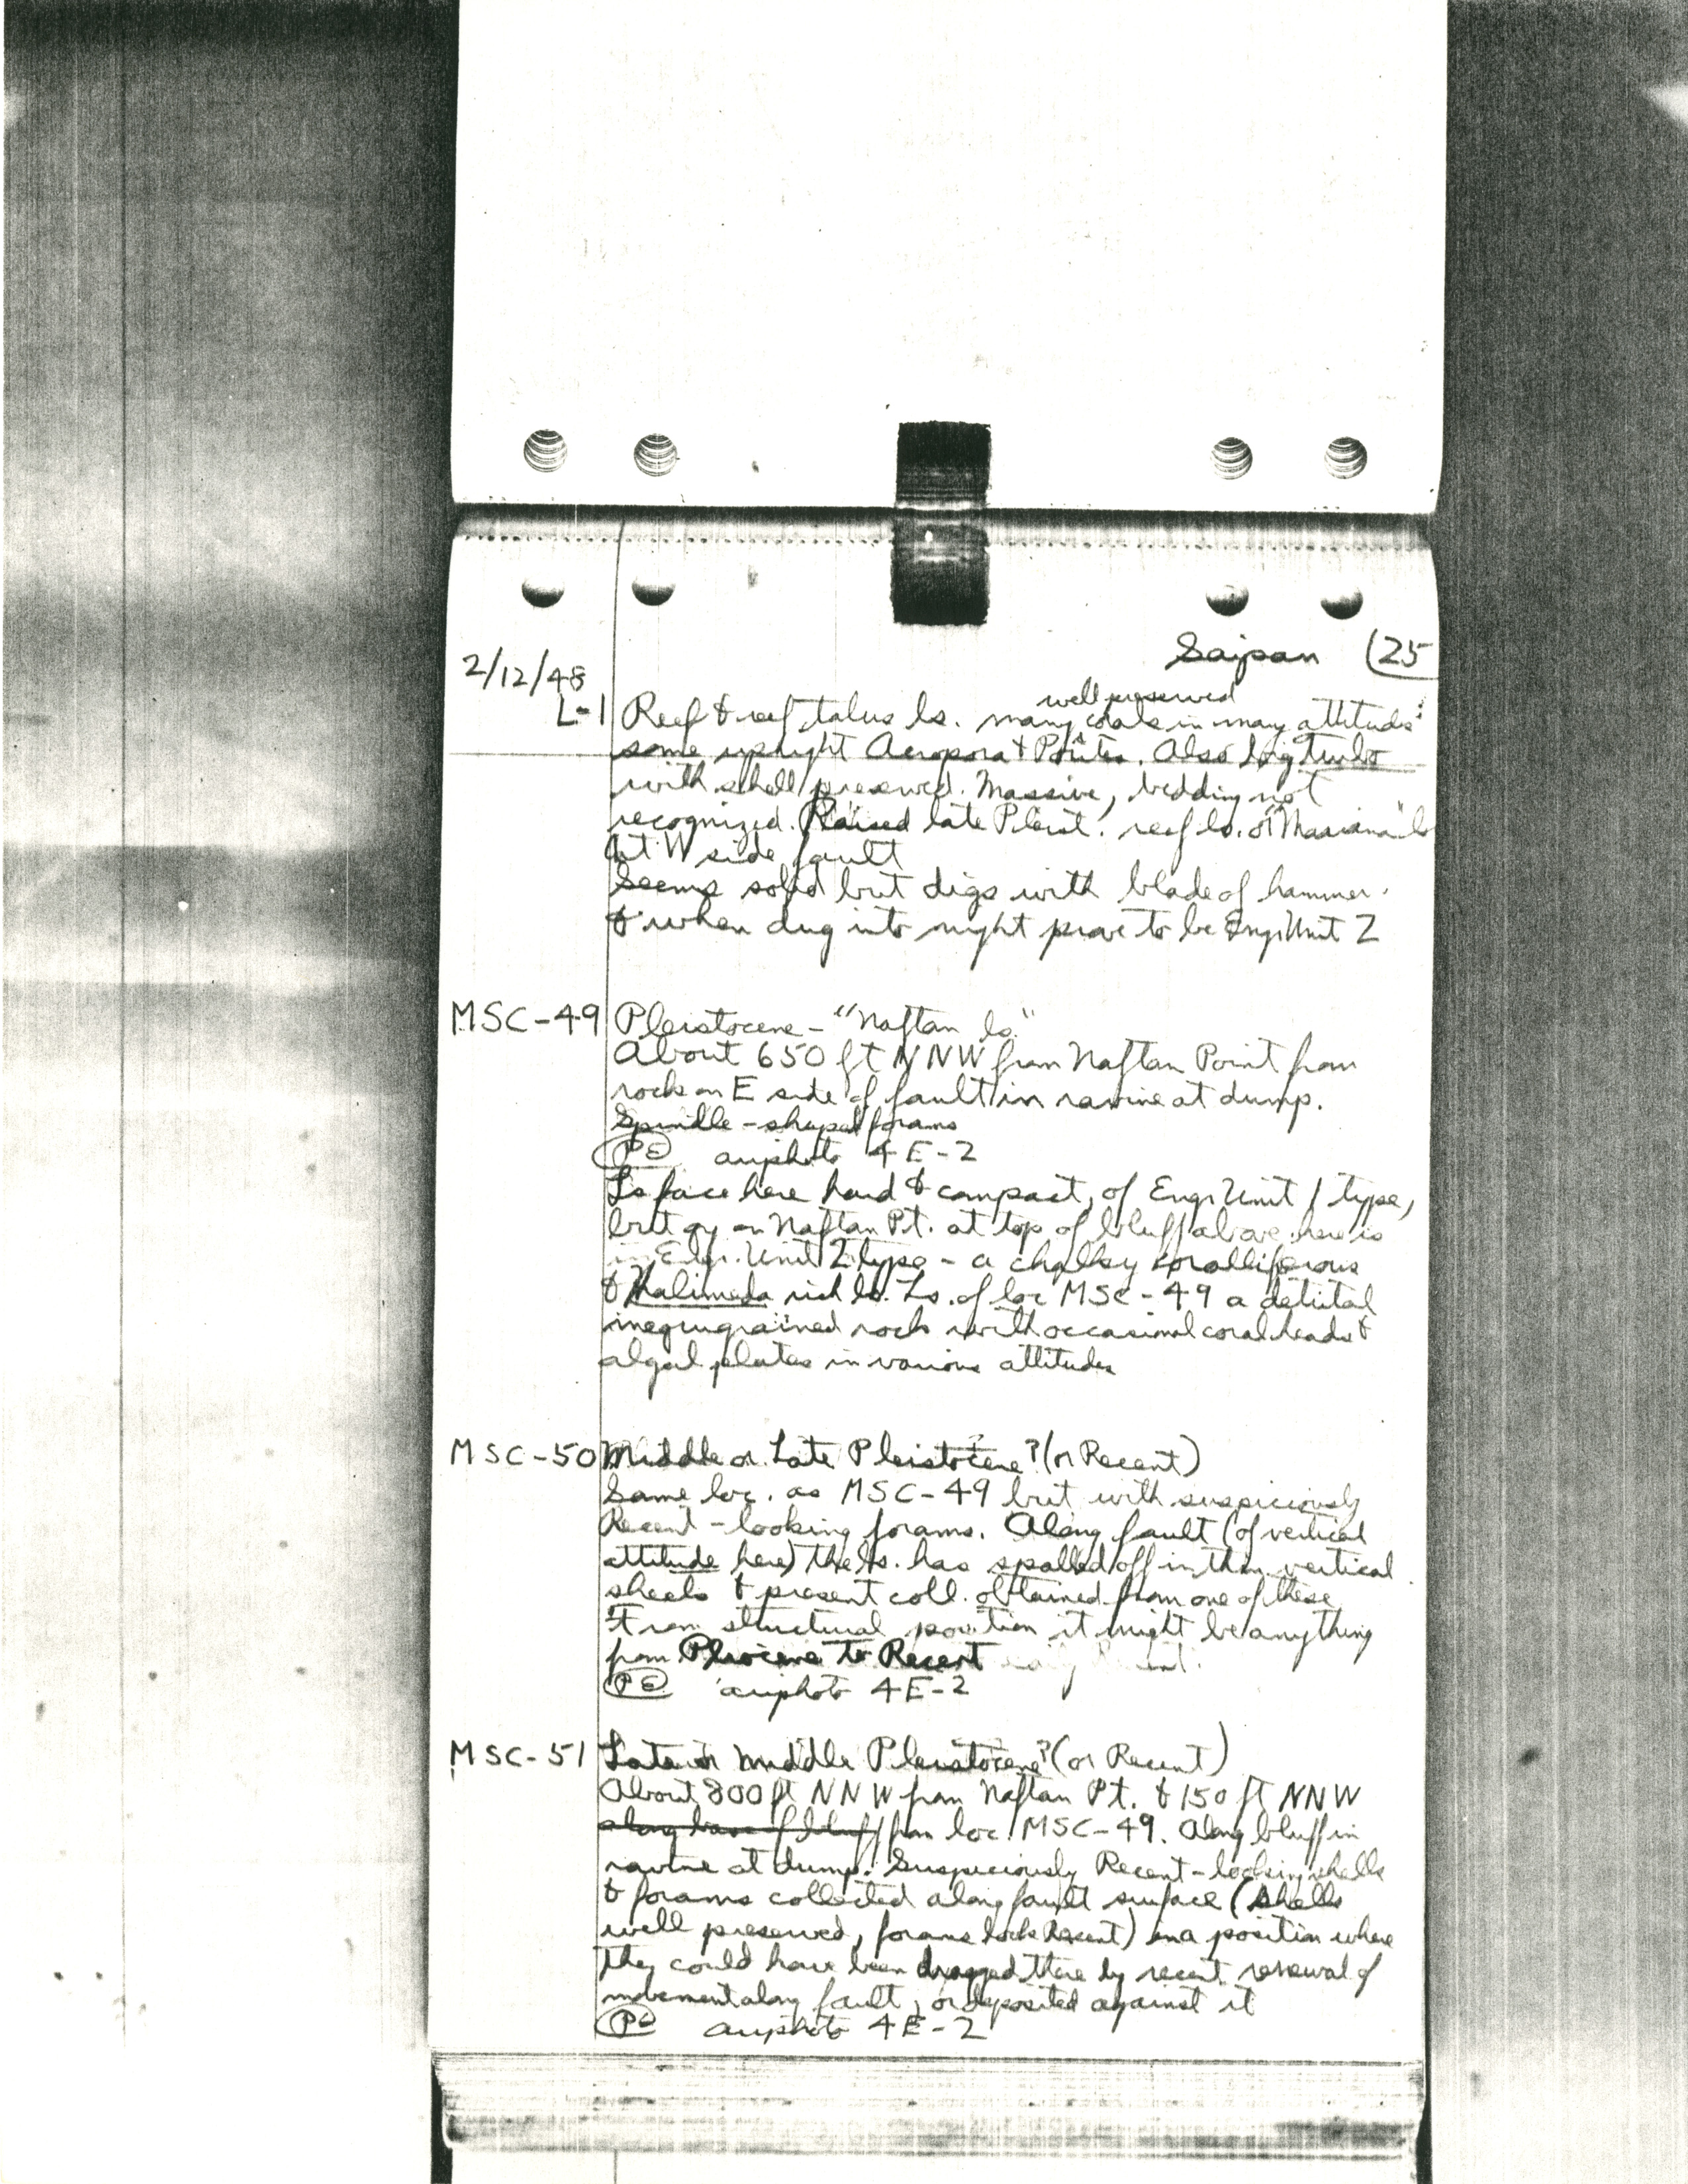 Saipan (25
2/12/48
well preserved
L-1 Reef & reef talus ls. many corals in many attitudes:
some upright Acropora & Porites. Also big Turbo
with shell preserved. Massive, bedding not
recognized. Raised late Pleist. reef ls. or "Mariana" ls
at W side fault
Seems solid but digs with blade of hammer.
& when dug into might prove to be Engr. Unit 2
MSC-49 Pleistocene - "Naftan ls."
About 650 ft NNW from Naftan Point from
rock on E side of fault in ravine at dump.
Spindle-shaped forams
airphoto 4E-2
Ls face here hard & compact, of Engr Unit 1 type,
but on Naftan Pt. at top of bluff above here is
Engr. Unit 2 type - a chalky coralliferous
& Halimeda rich ls. Ls. of loc MSC-49 a detrital
inequigrained rock with occasional coral heads &
algal plates in various attitudes
MSC-50 Middle or Late Pleistocene? (or Recent)
Same loc. as MSC-49 but with suspiciously
Recent-looking forams. Along fault (of vertical
attitude here) the ls. has spalled off in thin vertical
sheets & present coll. obtained from one of these
From structural position it might be anything
from Pliocene to Recent
airphoto 4E-2
MSC-51 Late or Middle Pleistocene? (or Recent)
About 800 ft NNW from Naftan Pt. & 150 ft NNW
along base of bluff from loc. MSC-49. Along bluff in
ravine at dump. Suspiciously Recent-looking shells
& forams collected along fault surface (shells
well preserved, forams look Recent) in a position where
they could have been dragged there by recent renewal of
movement along fault, or deposited against it
airphoto 4E-2